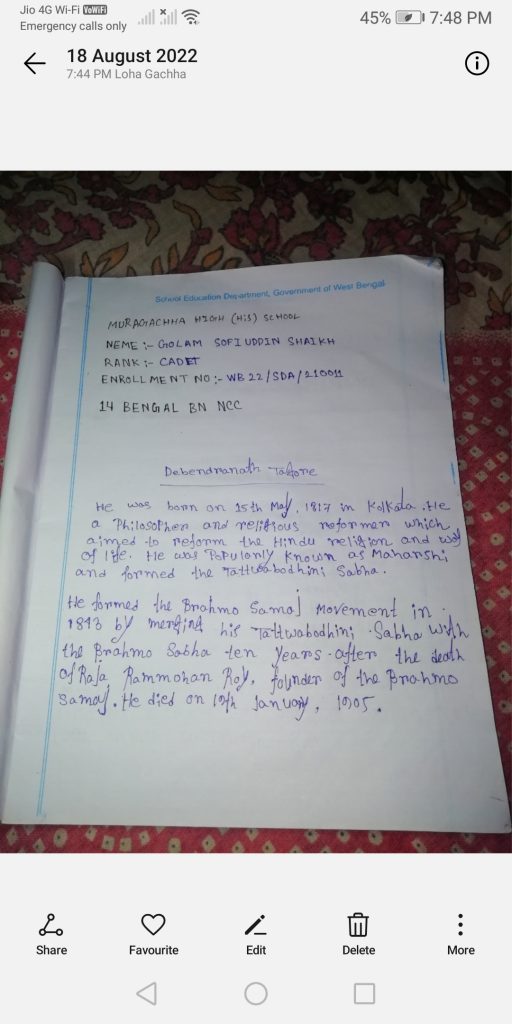 Jio 4G Wi-Fi VoWiFi
Emergency calls only
45% 7:48 PM
18 August 2022
7:44 PM Loha Gachha
School Education Department, Government of West Bengal
MURAGACHHA HIGH (H:S) SCHOOL
NEME :- GOLAM SOFIUDDIN SHAIKH
RANK :- CADET
ENROLLMENT NO :- WB 22/SDA/210011
14 BENGAL BN NCC
Debendranath Tagore
He was born on 15th May, 1817 in Kolkata. He
a Philosopher and religious reformer which
aimed to reform the Hindu religion and way
of life. He was Populorly known as Maharshi
and formed the Tattwabodhini Sabha.
He formed the Brahmo Samaj Movement in
1843 by merging his Tattwabodhini Sabha with
the Brahmo Sabha ten years after the death
of Raja Rammohan Roy, founder of the Brahmo
Samaj. He died on 19th January, 1905.
Share
Favourite
Edit
Delete
More